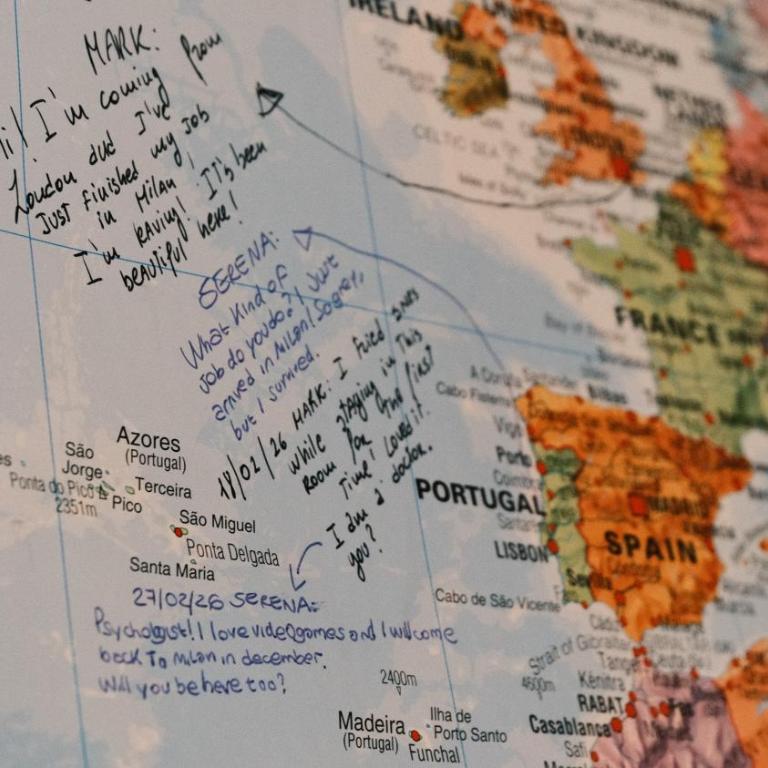 MARK:
Hi! I'm coming from
London and I've
just finished my job
in Milan,
I'm RAVING! It's been
beautiful here!
SERENA:
What kind of
job do you do? I just
arrived in Milan!
but I survived.
18/02/26 MARK: I
while staying in this
room for the first
time! Loved it!
I am a doctor.
you?
27/02/26 SERENA:
Psychologist! I love videogames and I will come
back to Milan in december.
Will you be here too?
IRELAND
UNITED KINGDOM
LONDON
CELTIC SEA
FRANCE
A Coruña
Santander
Bilbao
Cabo
Vigo
Porto
PORTUGAL
LISBON
MADRID
SPAIN
Sevilla
Cabo de São Vicente
Strait of Gibraltar
4600m
Kénitra
RABAT
Casablanca
Safi
Azores
(Portugal)
São
Jorge
Terceira
Ponta do Pico
2351m
Pico
São Miguel
Ponta Delgada
Santa Maria
2400m
Madeira
(Portugal)
Ilha de
Porto Santo
Funchal